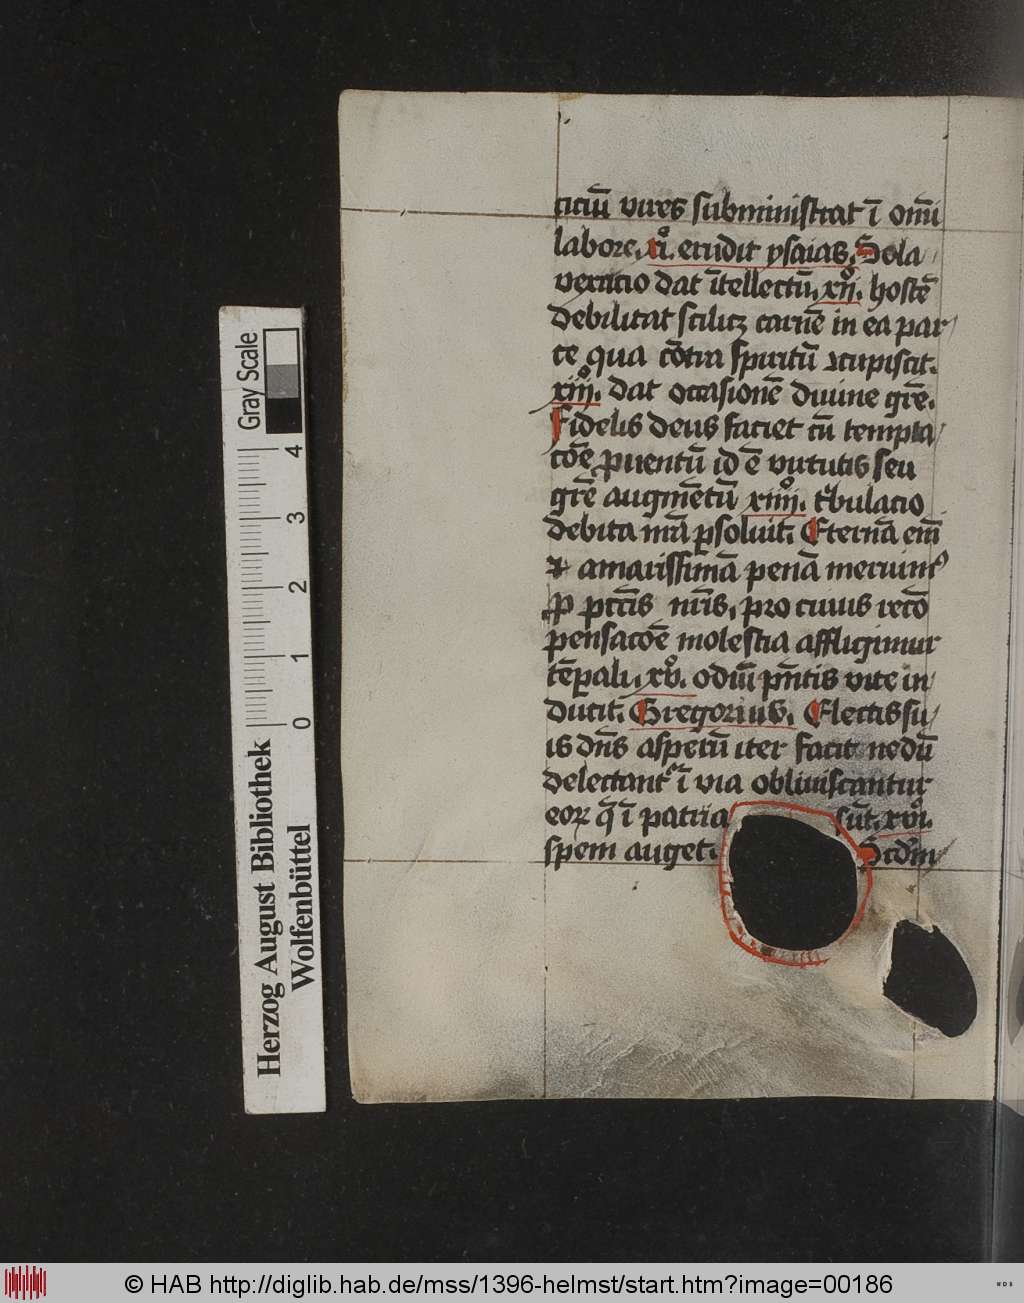 ticiū vires subministrat ī om̄i
labore. xiͦ. erudit ysaias. Sola
vexatio dat ītellectū. xijͦ. hostē
debilitat scilicꝫ carnē in ea par
te qua cōtra spiritū ↄcupiscit.
xiijͦ. dat occasionē diuine gr̄e.
Fidelis deus faciet cū tempta
cōe ꝓuentū id ē virtutis seu
gr̄e augmētū xiiijͦ. tͥbulacio
debita nr̄a ꝑsoluit. Eternā em̄
⁊ amarissimā penā meruimꝰ
ꝓ pctīs nr̄is, pro cuius recō
pensacōe molestia affligimur
tēꝑali. xvͦ. odiū pn̄tis vite in
ducit. Gregorius. Electis su
is dn̄s asperū iter facit ne dū
delectantᷣ ī via obliuiscantur
eoꝝ q̄ ī patria sūt. xviͦ.
spem auget. Scd̄m
Herzog August Bibliothek
Wolfenbüttel
0 1 2 3 4
Gray Scale
© HAB http://diglib.hab.de/mss/1396-helmst/start.htm?image=00186
WDB